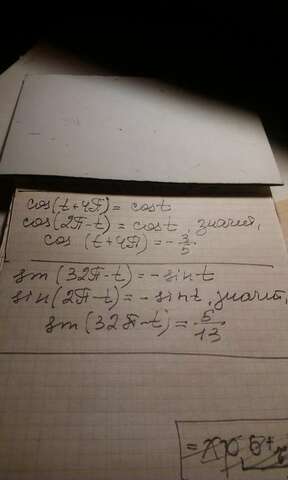 cos(t+4π)= cost
cos(2π-t)= cost, значит,
cos (t+4π)=-3/5.
sin(32π-t)=-sint
sin(2π-t)=-sint, значит,
sin(32π-t)=5/13.